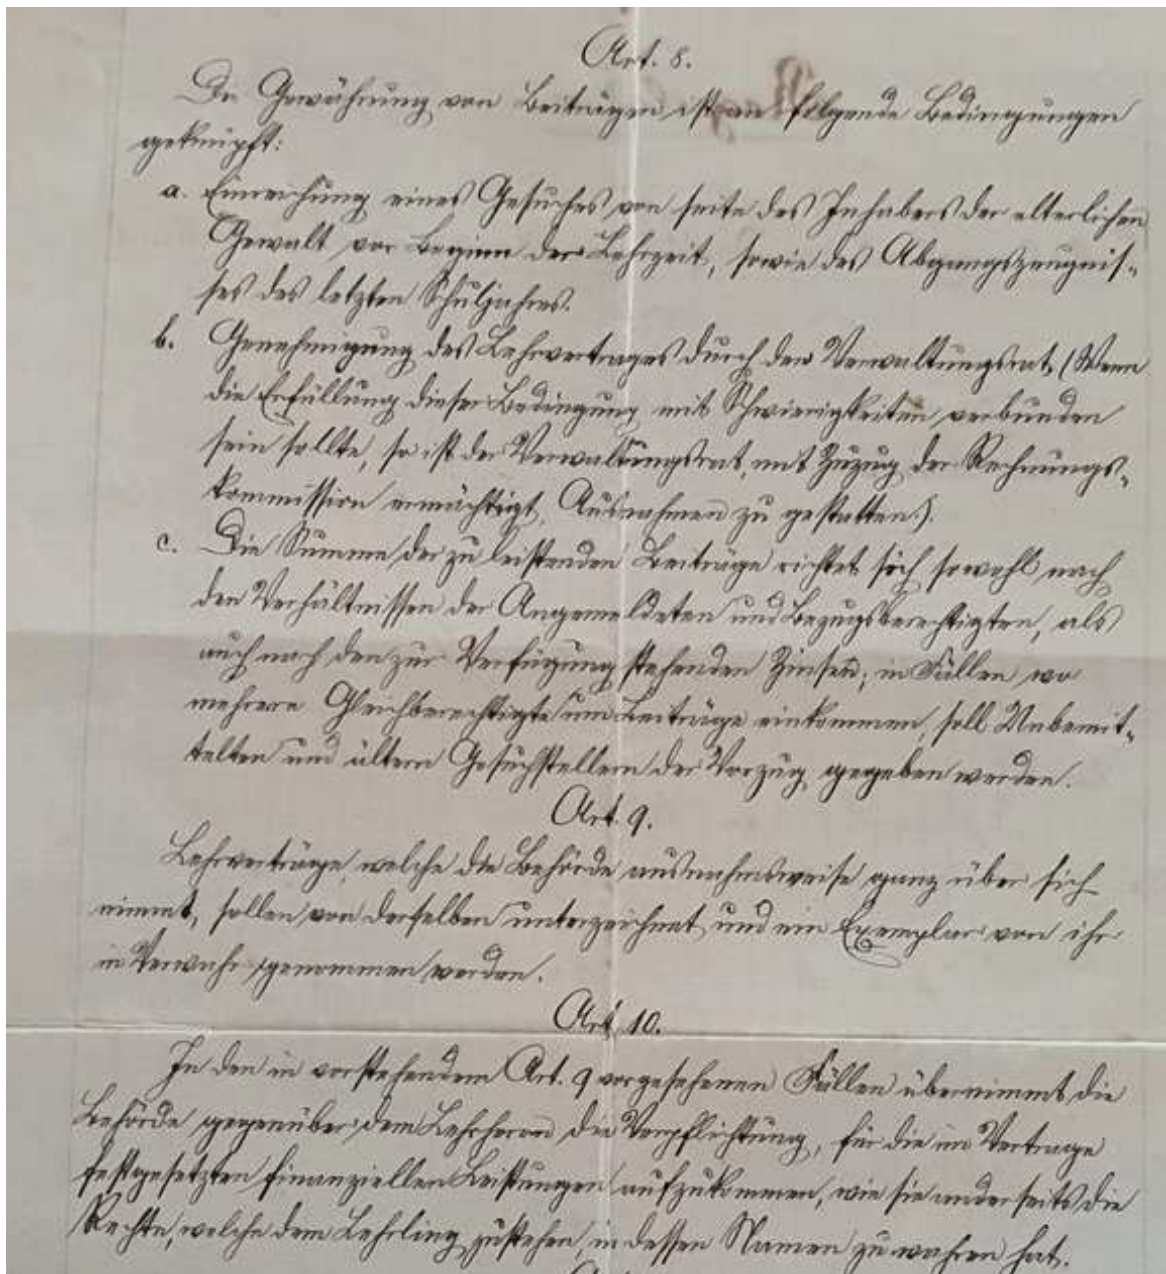 Art. 8.
Die Gewährung von Beiträgen ist an folgende Bedingungen
geknüpft:
a. Einreichung eines Gesuches von seite des Inhabers der elterlichen
Gewalt vor Beginn der Lehrzeit, sowie des Abgangszeugnis-
ses des letzten Schuljahres.
b. Genehmigung des Lehrvertrages durch den Verwaltungsrat. (Wenn
die Erfüllung dieser Bedingung mit Schwierigkeiten verbunden
sein sollte, so ist der Verwaltungsrat mit Zuzug der Rechnungs-
kommission ermächtigt, Ausnahmen zu gestatten.).
c. Die Summe der zu leistenden Beiträge richtet sich sowohl nach
den Verhältnissen der Angemeldeten und Bezugsberechtigten, als
auch nach den zur Verfügung stehenden Zinsen; in Fällen wo
mehrere Gleichberechtigte um Beiträge einkommen, soll Unbemit-
telten und ältern Gesuchstellern der Vorzug gegeben werden.
Art. 9.
Lehrverträge, welche die Behörde ausnahmsweise ganz über sich
nimmt, sollen von derselben unterzeichnet und ein Exemplar von ihr
in Verwahr genommen werden.
Art. 10.
In den in vorstehendem Art. 9 vorgesehenen Fällen übernimmt die
Behörde gegenüber dem Lehrherrn die Verpflichtung, für die im Vertrage
festgesetzten finanziellen Leistungen aufzukommen, wie sie anderseits die
Rechte, welche dem Lehrling zustehen, in dessen Namen zu wahren hat.